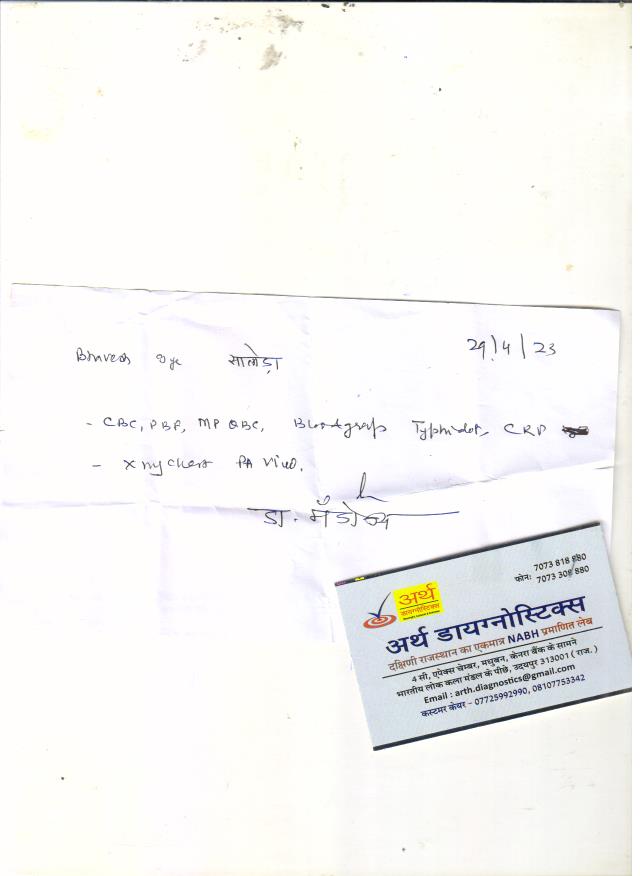 29/4/23
Bhavesh 9yr सालेड़ा
- CBC, PBF, MP QBC, Bloodgroup Typhidot, CRP
- X ray Chest PA View.
डा.
7073 818 880
फोन: 7073 308 880
अर्थ
डायग्नोस्टिक्स
अर्थ डायग्नोस्टिक्स
दक्षिणी राजस्थान का एकमात्र NABH प्रमाणित लेब
4 सी, एपेक्स चेम्बर, मधुबन, केनरा बैंक के सामने
भारतीय लोक कला मंडल के पीछे, उदयपुर 313001 ( राज. )
Email : arth.diagnostics@gmail.com
कस्टमर केयर - 07725992990, 08107753342